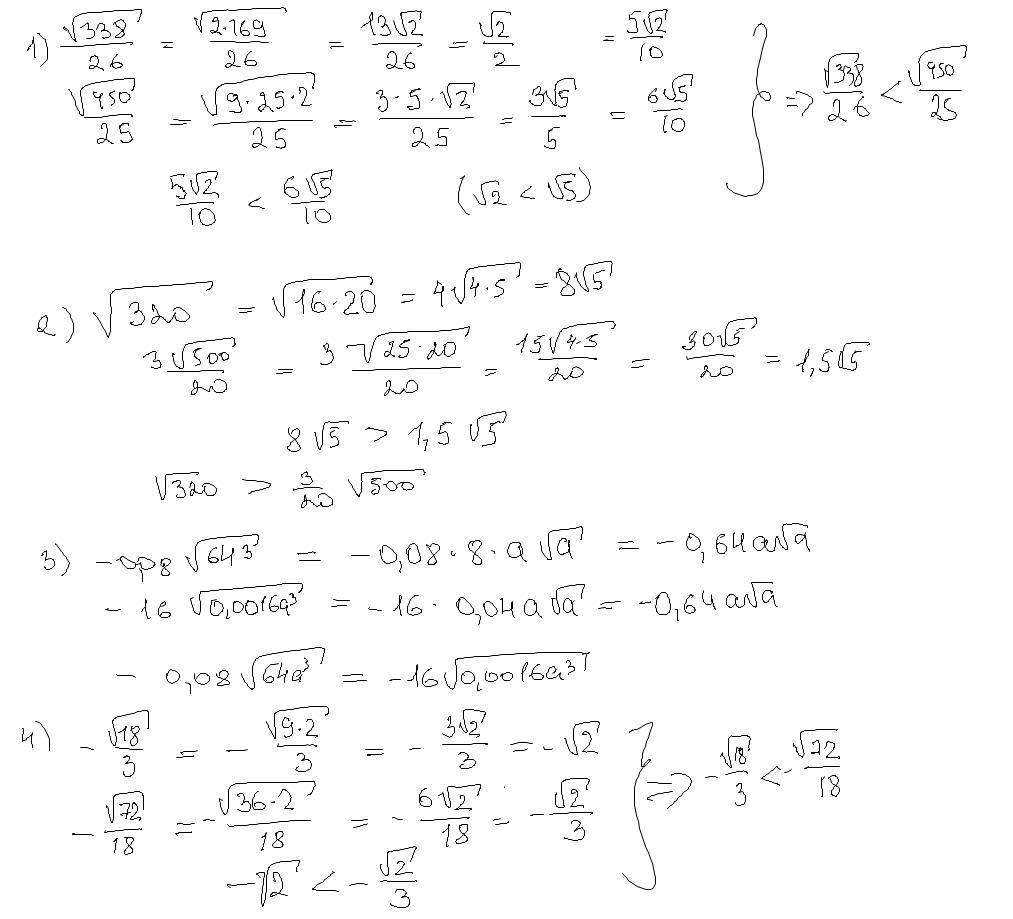 1) √338/26 = √2·169/26 = 13√2/26 = √2/2 = 5√2/10
√450/25 = √9·25·2/25 = 3·5·√2/25 = 3√5/5 = 6√5/10 } => √338/26 < √450/25
5√2/10 < 6√5/10 (√2 < √5)
2) √320 = √16·20 = 4√4·5 = 8√5
3√500/20 = 3√25·20/20 = 15√4·5/20 = 30√5/20 = 1,5√5
8√5 > 1,5√5
√320 > 3/20 √500
3) -0,08 √64³ = -0,08·8·a√a = -0,64a√a
-16 √0,0016a³ = -16·0,04a√a = -0,64a√a
-0,08√64a³ = -16√0,0016a³
4) -√18/3 = -√9·2/3 = -3√2/3 = -√2
-√72/18 = -√36·2/18 = -6√2/18 = -√2/3 } => -√18/3 < -√72/18
-√2 < -√2/3